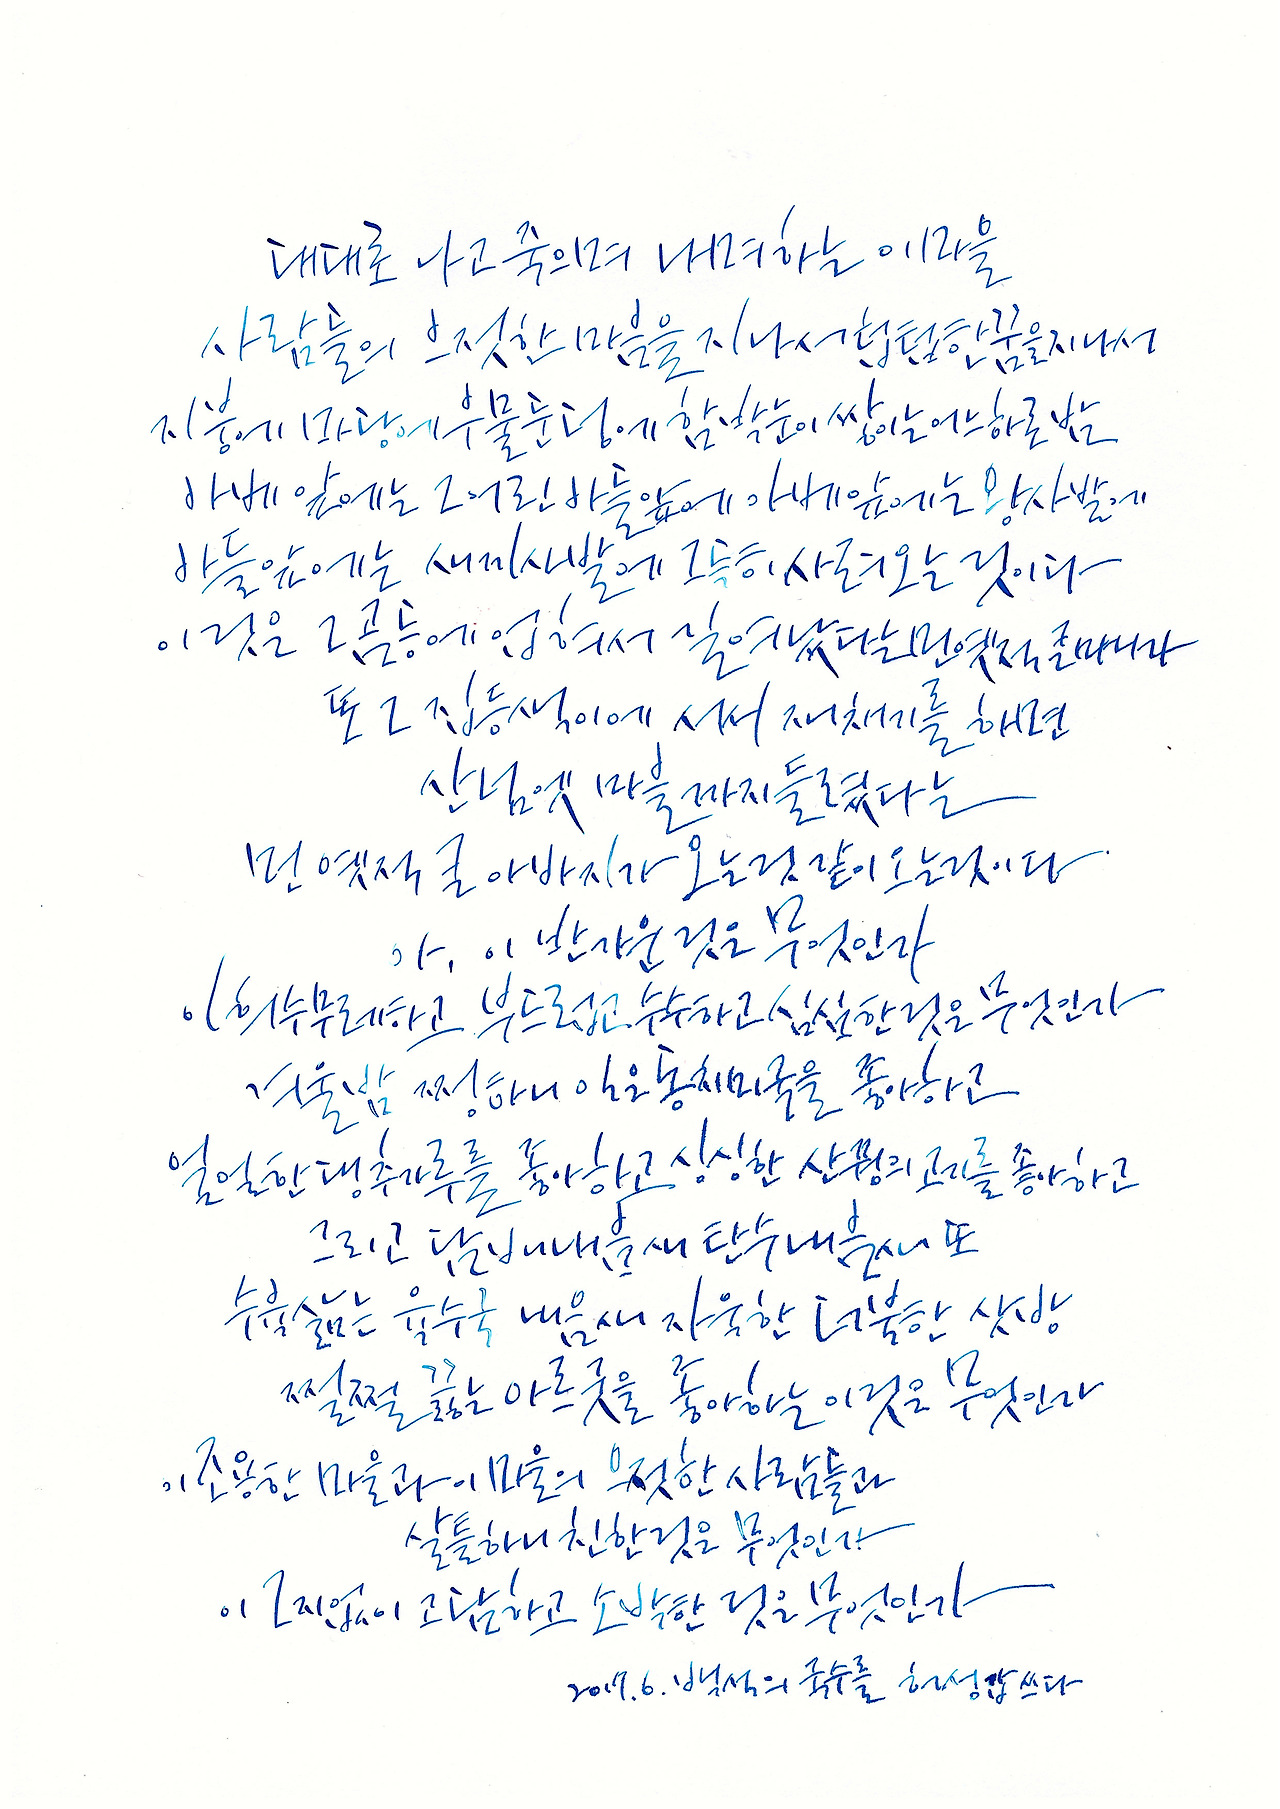 대대로 나고 죽으며 내려하는 이 마을
사람들의 으젓한 마음을 지나서 텁텁한 꿈을 지나서
지붕에 마당에 우물둔덩에 함박눈이 쌓이는 어느 하로 밤
아베 앞에는 그 어린 아들 앞에 아베 앞에는 왕사발에
아들 앞에는 새끼사발에 그득히 사려오는 것이다
이것은 그 곰등에 업혀서 길여났다는 먼 옛적 큰마니가
또 그 집등색이에 서서 재채기를 하면
산넘엣 마을까지 들렸다는
먼 옛적 큰 아바지가 오는 것같이 오는 것이다
아, 이 반가운 것은 무엇인가
이 히수무레하고 부드럽고 수수하고 슴슴한 것은 무엇인가
겨울밤 쩡하니 익은 동치미국을 좋아하고
얼얼한 댕추가루를 좋아하고 싱싱한 산꿩의 고기를 좋아하고
그리고 담배 내음새 탄수 내음새 또
수육을 삶는 육수국 내음새 자욱한 더북한 삿방
쩔쩔 끓는 아르굿을 좋아하는 이것은 무엇인가
이 조용한 마을과 이 마을의 으젓한 사람들과
살틀하니 친한 것은 무엇인가
이 그지없이 고담하고 소박한 것은 무엇인가
2017. 6. 백석의 국수를 허성갑 쓰다